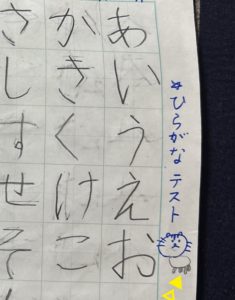 ☆ひらがなテスト
あいうえお
がきくけこ
さしすせそ